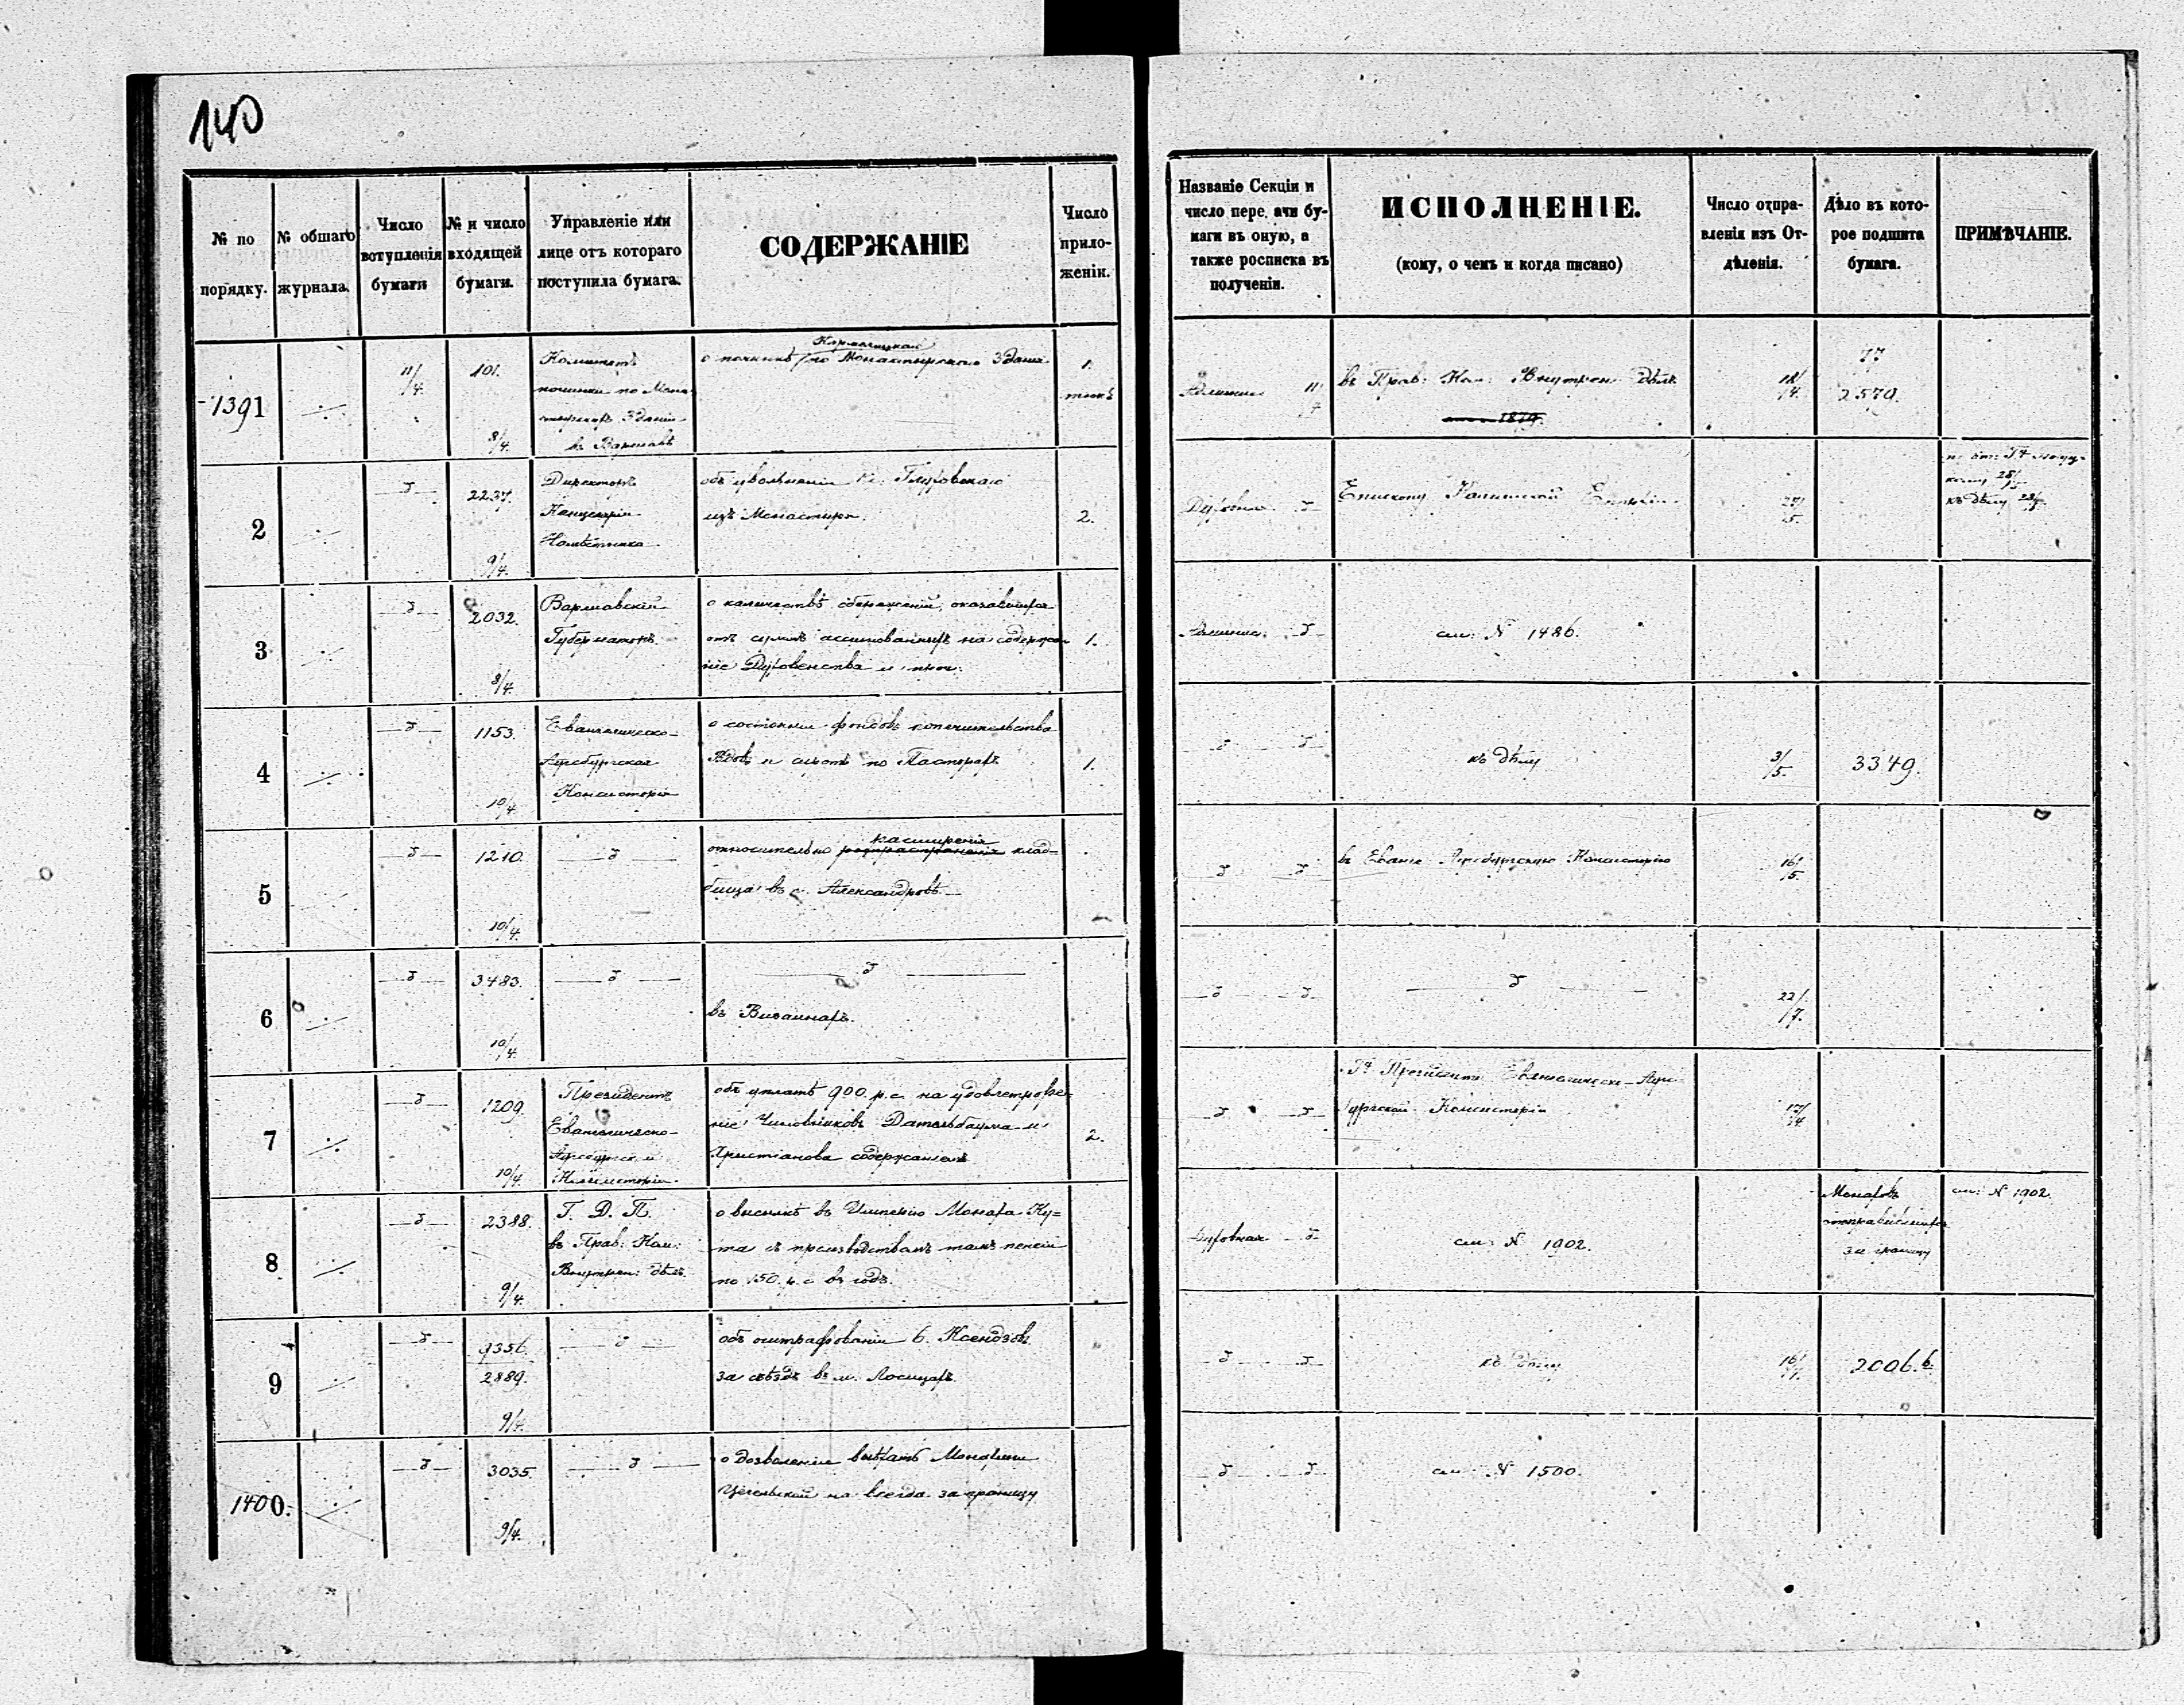 140
№ по порядку.
№ общаго журнала.
Число вступленія бумаги
№ и число входящей бумаги.
Управленіе или лице отъ котораго поступила бумага.
СОДЕРЖАНІЕ
Число приложеніи.
Названіе Секціи и число пере ачи бумаги въ оную, а также росписка въ полученіи.
ИСПОЛНЕНІЕ.
(кому, о чемъ и когда писано)
Число отправленія изъ Отдѣленія.
Дѣло въ которое подшита бумага.
ПРИМѢЧАНІЕ.
1391
11/4.
101.
8/4.
Комитетъ
починки по Мона-
въ Варшавѣ
о починкѣ по Монастырскаго Зданія
1.
11/4
въ Прав: Ком: Внутрен: дѣлъ
18/4.
77
2579.
2
2237.
9/4.
Директоръ
Канцеляріи
Намѣстника
объ увольненіи Гутовскаго
изъ Монастыря.
2.
Духовная
Епископу Калишской Епархіи
28/5.
къ дѣлу
3
2032.
8/4.
Варшавскій
Губернаторъ.
о количествѣ сбереженій, оказавшихся
отъ суммъ ассигнованныхъ на содержа
ніе Духовенства и проч.
1.
см: N 1486.
4
1153.
10/4
Евангелическо-
Аугсбургская
Консисторія
о состояніи фондовъ попечительства
Вдовъ и сиротъ по Пасторахъ
1.
къ дѣлу
3/5.
3349.
5
1210.
10/4.
относительно расширенія клад-
бища въ г. Александровѣ
въ Еванг. Аугсбургскую Консисторію
16/5.
6
3483.
10/4.
въ Вижайнахъ.
22/7.
7
1209.
10/4.
Президентъ
Евангелическо-
Аугсбургской
Консисторіи.
объ уплатѣ 900 р. с. на удовлетворе-
ніе Чиновниковъ Дательбаума и
Христіанова содержаніемъ
2.
Гну Президенту Евангелическо-Аугс-
бургской Консисторіи
8
2388.
9/4.
Г. Д. П.
въ Прав: Ком:
Внутрен: дѣлъ.
о высылкѣ въ Имперію Монаха Ку=
та съ производствомъ тамъ пенсіи
по 150 р. с. въ годъ.
Духовная
см: N 1902.
Монаховъ
отправившихся
за границу
см: N 1902.
9
9356.
2889.
9/4.
объ оштрафованіи 6. Ксендзовъ
за съѣздъ въ м. Лосицахъ.
къ дѣлу
2006.b
1400.
3035.
9/4.
о дозволеніи выѣхать Монахини
Цегельской на всегда за границу
см: N 1500.